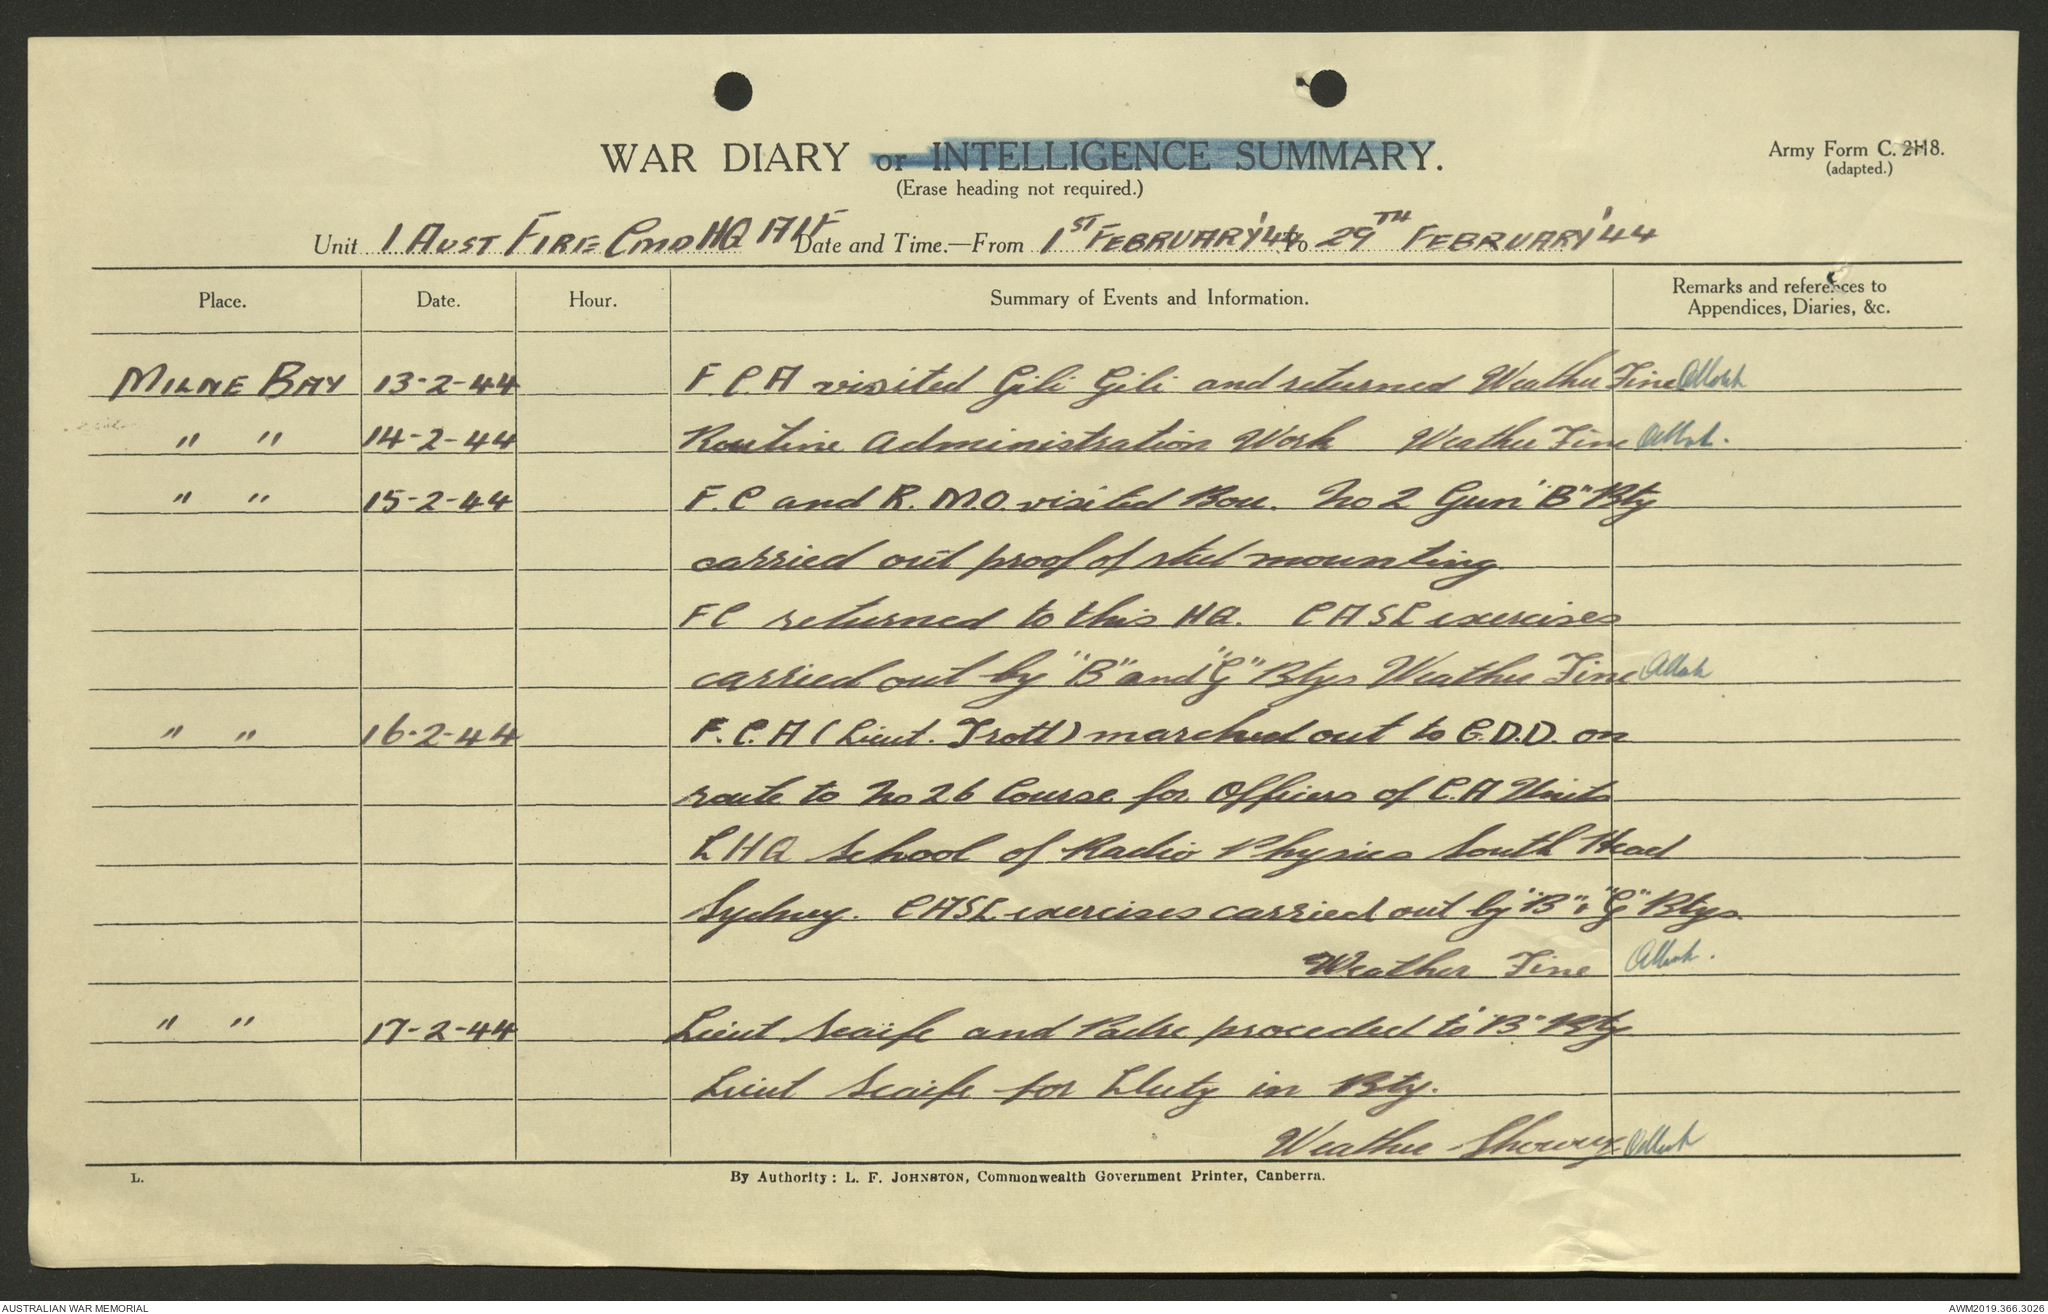 WAR DIARY or INTELLIGENCE SUMMARY.
Army Form C. 2118.
(adapted.)
(Erase heading not required.)
Unit 1 AUST FIRE CMD HQ AIF Date and Time.—From 1ST FEBRUARY '44 To 29TH FEBRUARY '44
Place. Date. Hour. Summary of Events and Information. Remarks and references to
Appendices, Diaries, &c.
MILNE BAY 13-2-44 F.C.A visited Gili Gili and returned Weather Fine
" " 14-2-44 Routine Administration Work Weather Fine
" " 15-2-44 F.C and R.M.O. visited Bou. No 2 Gun "B" Bty
carried out proof of steel mounting.
FC returned to this HQ. CASL exercises
carried out by "B" and "G" Btys Weather Fine
" " 16-2-44 F.C.A (Lieut. Trott) marched out to G.D.D. on
route to No 26 Course for Officers of C.A Units
LHQ School of Radio Physics South Head
Sydney. CASL exercises carried out by "B" & "G" Btys.
Weather Fine
" " 17-2-44 Lieut Scaife and Padre proceeded to "B" Bty
Lieut Scaife for Duty in Bty.
Weather Showery
L.
By Authority: L. F. JOHNSTON, Commonwealth Government Printer, Canberra.
AUSTRALIAN WAR MEMORIAL AWM2019.366.3026